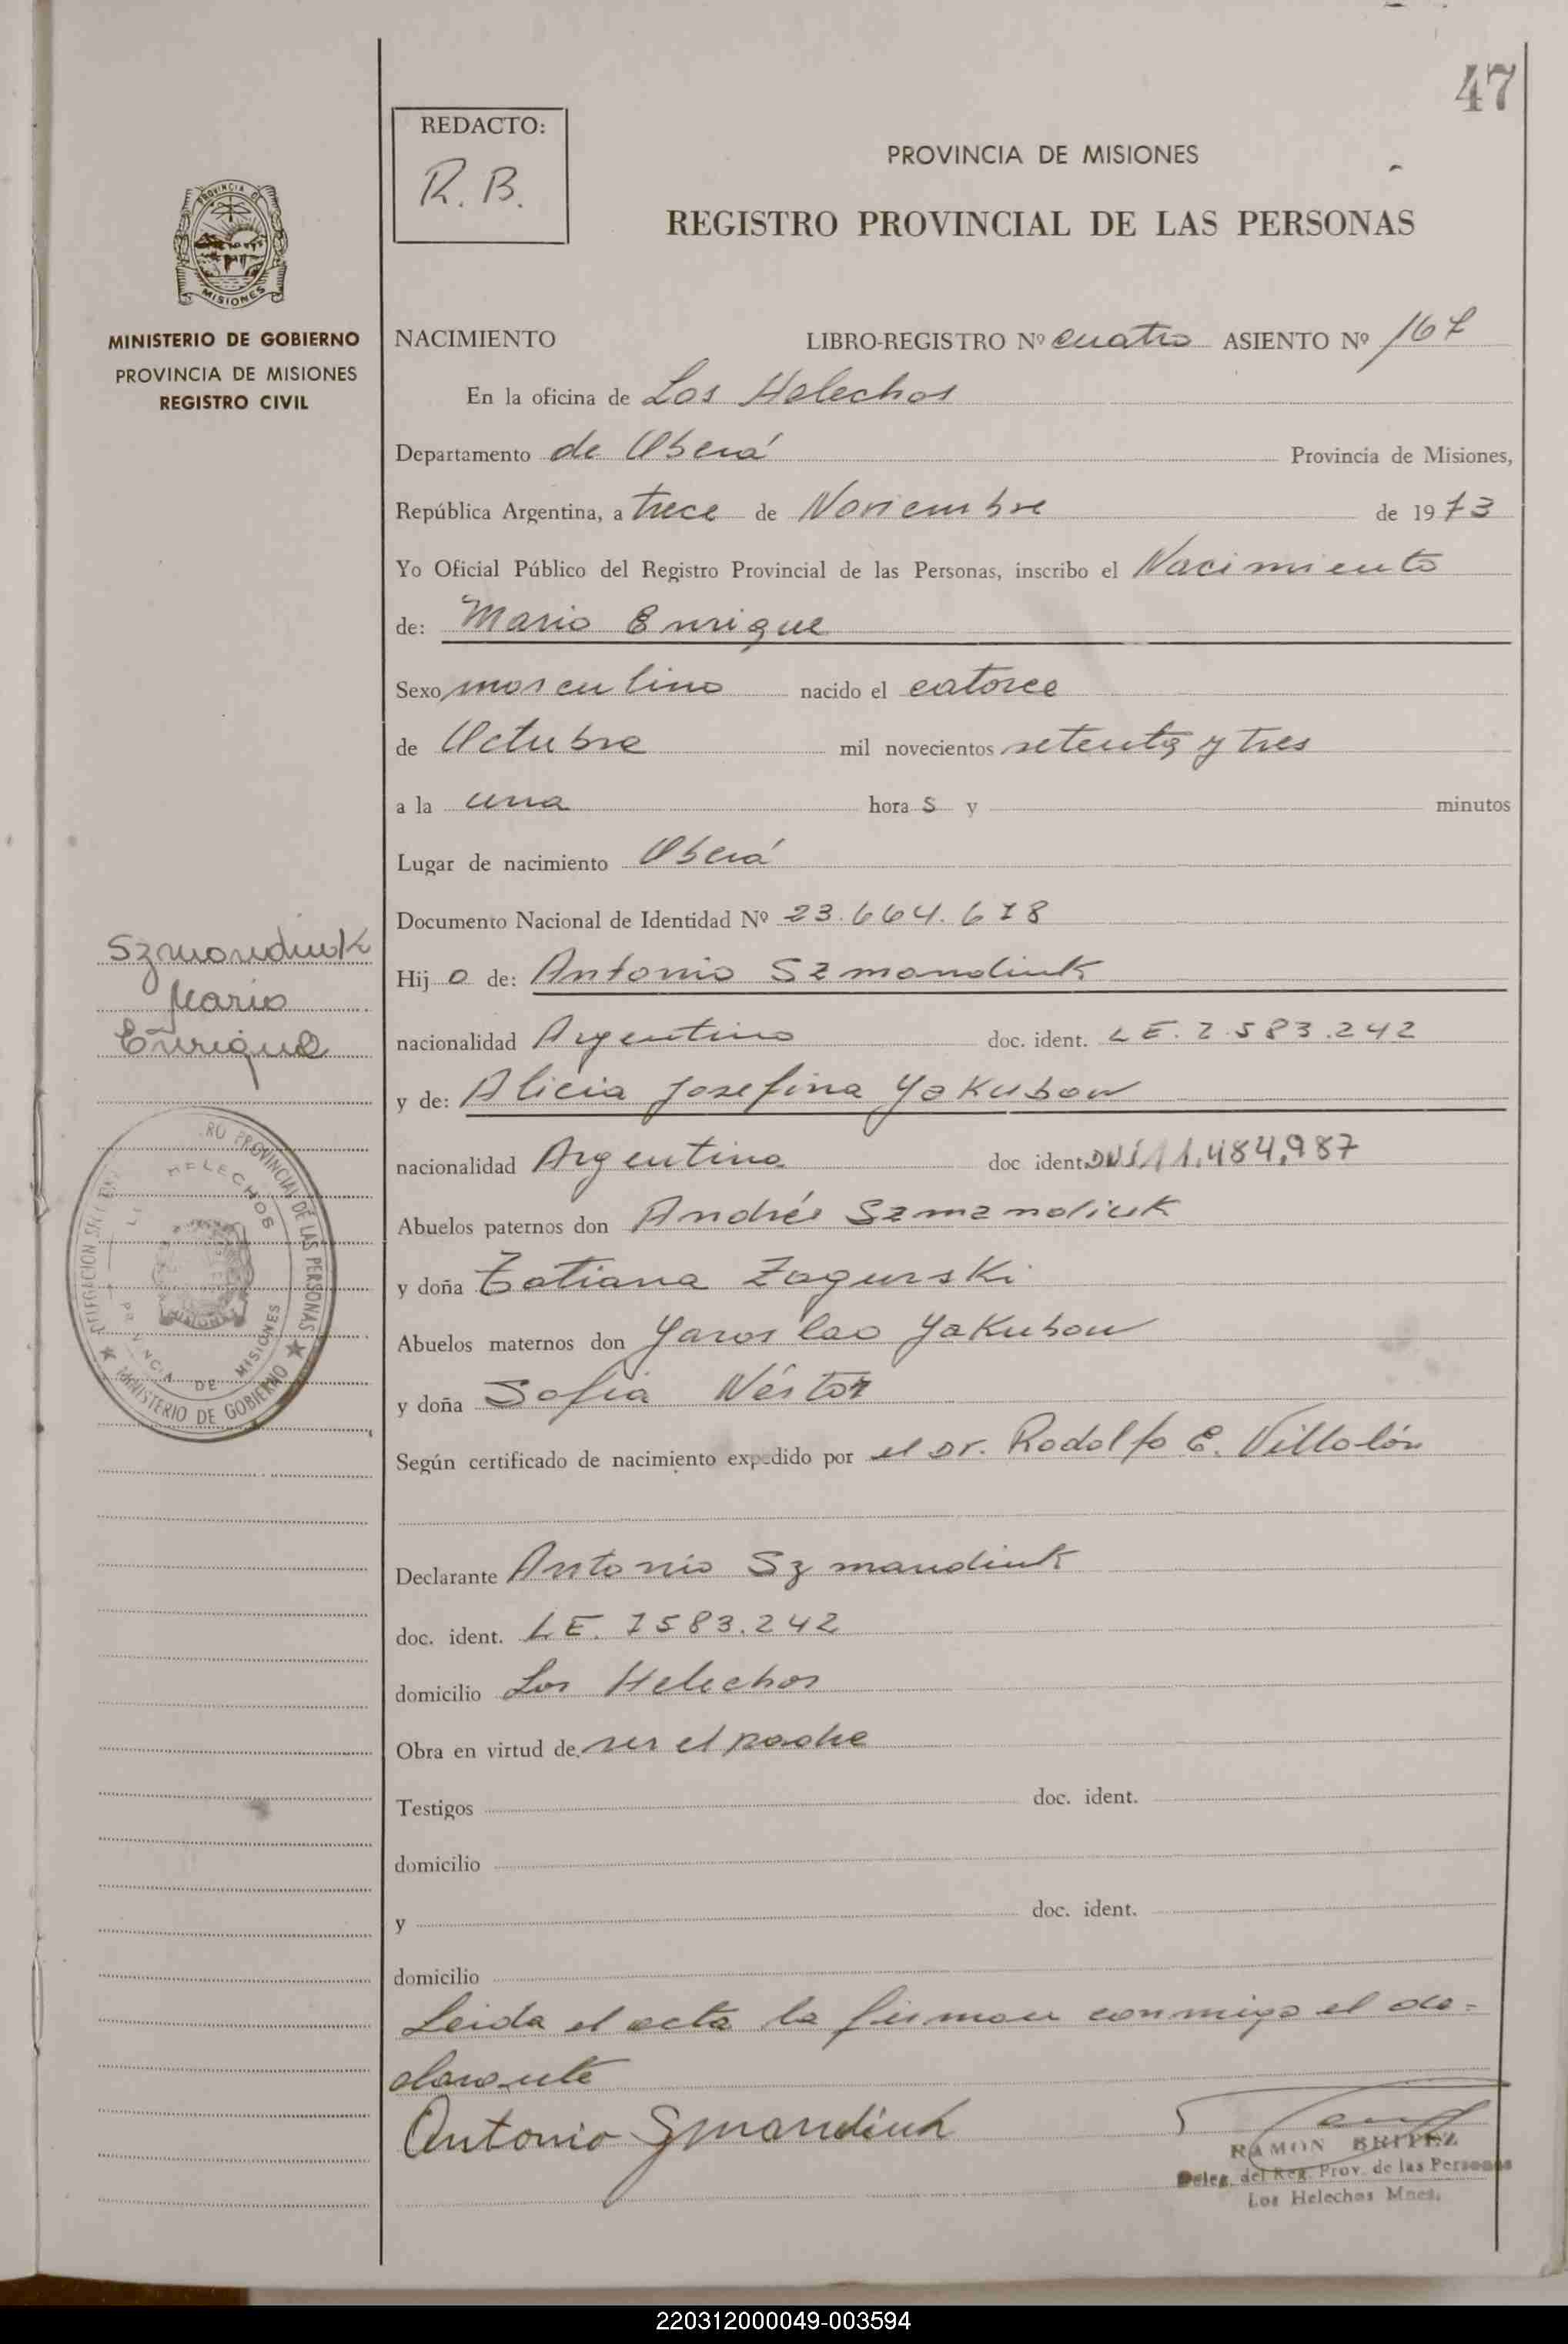 47
REDACTO:
R. B.
PROVINCIA DE MISIONES
REGISTRO PROVINCIAL DE LAS PERSONAS
PROVINCIA DE
MISIONES
MINISTERIO DE GOBIERNO
PROVINCIA DE MISIONES
REGISTRO CIVIL
NACIMIENTO LIBRO-REGISTRO Nº cuatro ASIENTO Nº 167
En la oficina de Los Helechos
Departamento de Oberá Provincia de Misiones,
República Argentina, a trece de Noviembre de 1973
Yo Oficial Público del Registro Provincial de las Personas, inscribo el Nacimiento
de: Mario Enrique
Sexo masculino nacido el catorce
de Octubre mil novecientos setenta y tres
a la una hora s y minutos
Lugar de nacimiento Oberá
Documento Nacional de Identidad Nº 23.664.678
Szmandiuk
Mario
Enrique
Hij o de: Antonio Szmandiuk
nacionalidad Argentino doc. ident. L E. 7.583.242
y de: Alicia Josefina Yakubow
nacionalidad Argentina doc ident. DNI 11.484,987
Abuelos paternos don Andrés Szmandiuk
y doña Tatiana Zagurski
Abuelos maternos don Yaroslao Yakubow
y doña Sofia Néstor
Según certificado de nacimiento expedido por el Dr. Rodolfo E. Villalón
RO PROVINCIAL DE LAS PERSONAS
HELECHOS
DE MISIONES
MINISTERIO DE GOBIERNO
Declarante Antonio Szmandiuk
doc. ident. L E. 7583.242
domicilio Los Helechos
Obra en virtud de ser el padre
Testigos doc. ident.
domicilio
y doc. ident.
domicilio
Leida el acta la firman conmigo el de=
clarante
Antonio Szmandiuk
RAMON BRITEZ
Deleg. del Reg. Prov. de las Personas
Los Helechos Mnes.
220312000049-003594